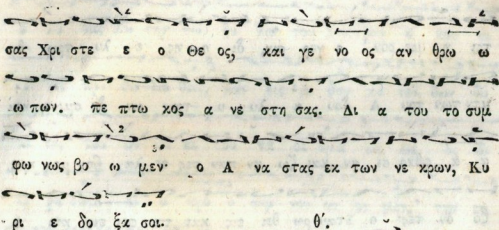 σας Χρι στε ε ο Θε ος, και γε νο ος αν θρω ω
ω πων. πε πτω κος α νε στη σας. Δι α του το συμ
φω νως βο ω μεν· ο Α να στας εκ των νε κρων, Κυ
ρι ε δο ξα σοι. θ'.